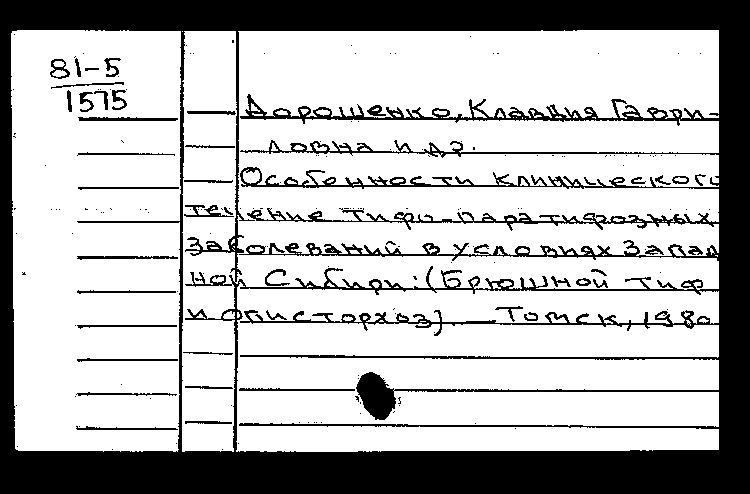 81-5
1575
Дорошенко, Клавдия Гаври-
ловна и др.
Особенности клинического
течение тифо-паратифозных
заболеваний в условиях Запад
ной Сибири: (Брюшной тиф
и описторхоз) — Томск, 1980